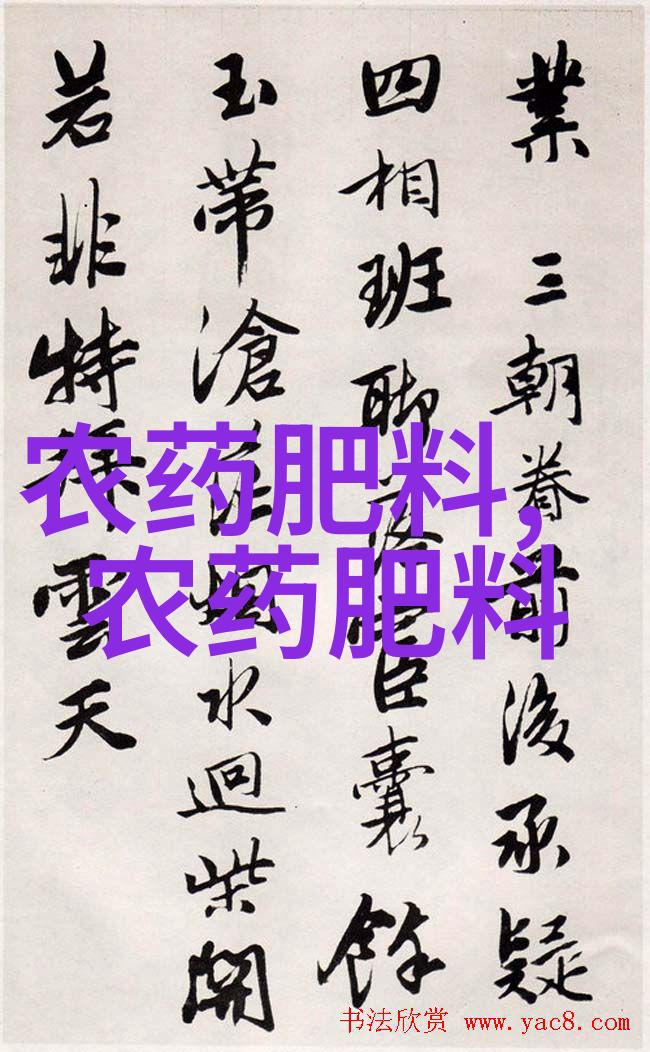 業 三朝眷前後承疑
四相班臣囊餘
玉帶滄水迴柴開
若非特雲天
农药肥料,
农药肥料
书法欣赏 www.yac8.com